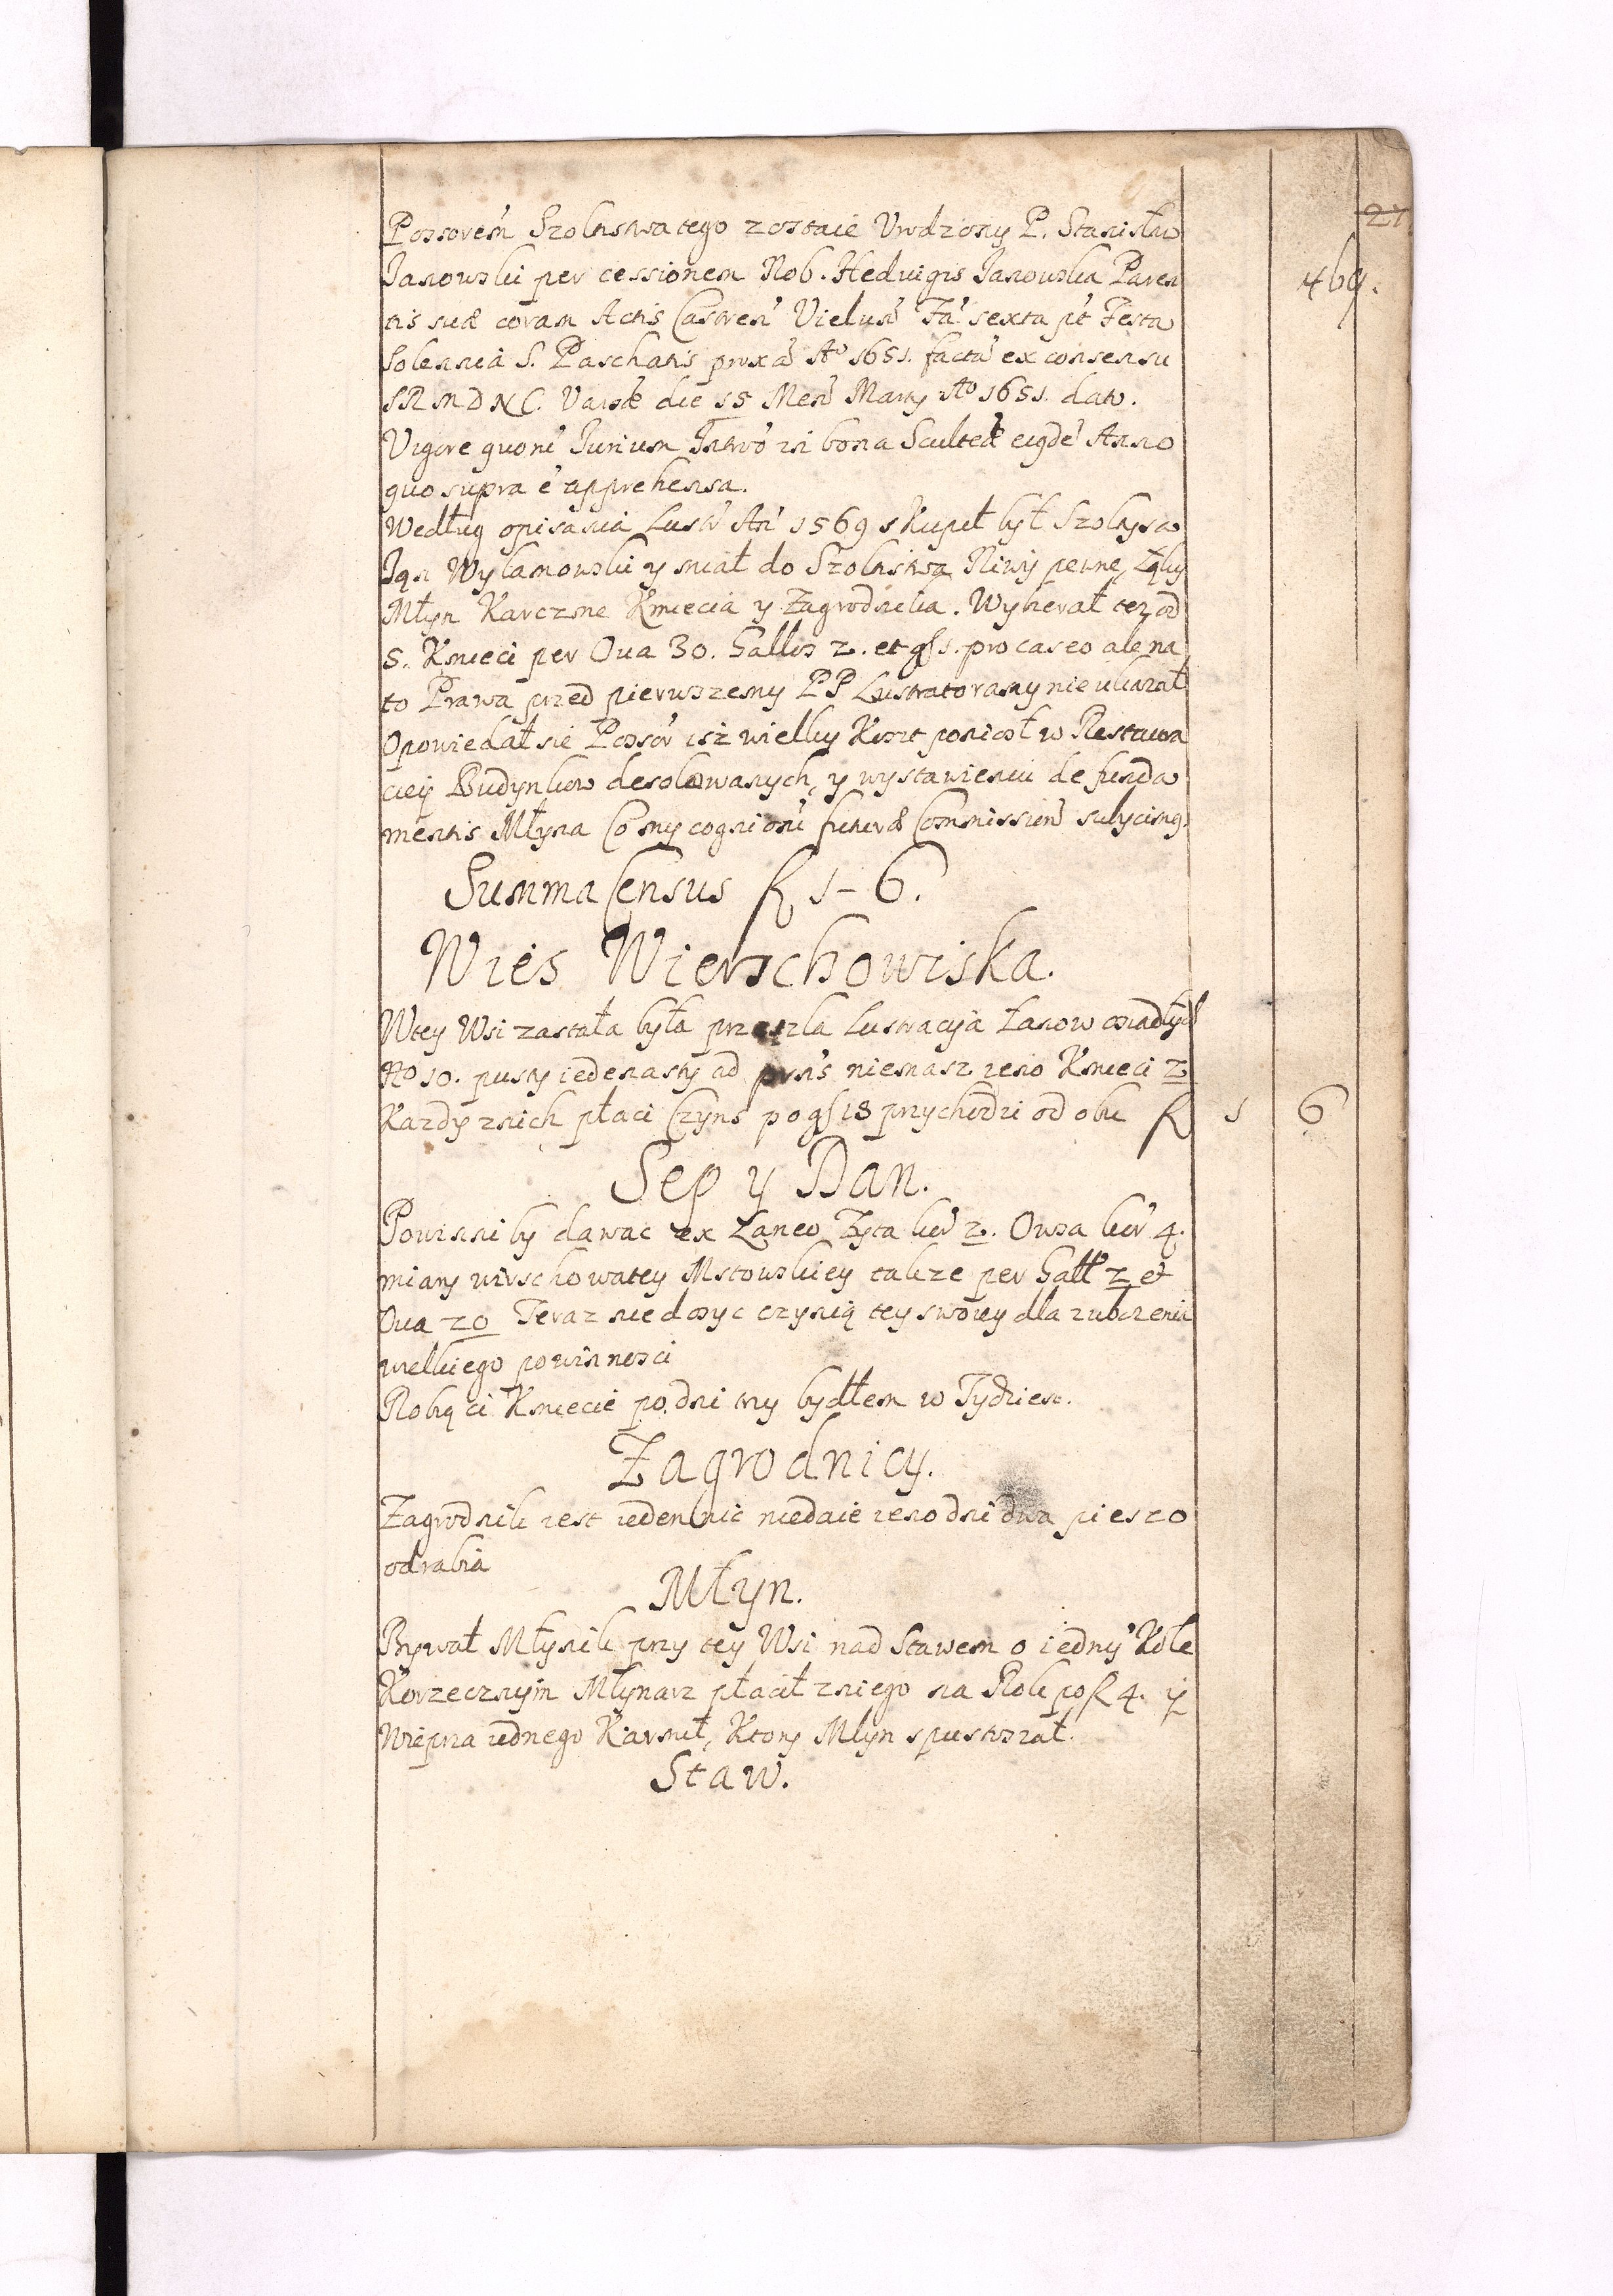 27.
469.
Possorem̃ Szoltstwa tego zostaie Vrodzony P. Stanisław
Janowski per cessionem Nob. Hedvigis Janowska Paren
tis suæ coram Actis Castren̄ Vielun̄ Fã sexta pt̄ Festa
Solennia S. Paschatis prox̃a A⁰ 1651. facta ex consensu
S R M D N C. Varsæ die 15 Men̄ Marty A⁰ 1651. dato.
Vigore quoru̇ Jurium Intro̊ in bona Sculteæ eiọde̊ Anno
quo supra e̊ apprehensa.
Według opisania Lustr̄ An̄ 1569 skupił był Szoltystwo
Jan Wylamowski y miał do Szoltistwa Niwy pewne, Łąky
Młyn Karczme Kmiecia y Zagrodnika. Wybierał tez od
5. Kmieci per Oua 30. Gallos 2. et gs 1. pro caseo ale na
to Prawa przed pierwszemy PP Lustratoramy nie ukazał
Opowiedał sie Possor̄ isz wielky Koszt poniosł w Restaura
ciey Budynkow desolowanych, y wystawieniu de funda
mentis Młyna Co my cognioni̊ futuræ Commission̄ subycimg.
Summa Census fl 1 - 6.
Wies Wierzchowiska.
W tey Wsi zastała była przeszla Lustracyja Łanow osiadłych
No 10. pusty iedenasty ad prn̄s niemasz ieno Kmieci 2
Kazdy z nich płaci Czyns po gs 18 przychodzi od obu fl 1 6
Sep y Dan.
Powinni by dawac ex Laneo Zyta kor̄ 2. Owsa kor̄ 4.
miary wirschowatey Mstowskiey takze per Gałł 2 et
Oua 20 Teraz niedosyc czynią tey swoiey dla zubozenia
welkiego powinnosci
Robią ci Kmiecie po dni trzy bydłem w Tydzien.
Zagrodnicy.
Zagrodnik iest ieden nic niedaie ieno dni dwa pieszo
odrabia
Młyn.
Bywał Młynik przy tey Wsi nad Stawem o iedny̆ Kole
Korzecznym Młynarz płacił z niego na Rok po fl 4. y
Wieprza iednego Karmił, Ktory Młyn spustoszał.
Staw.